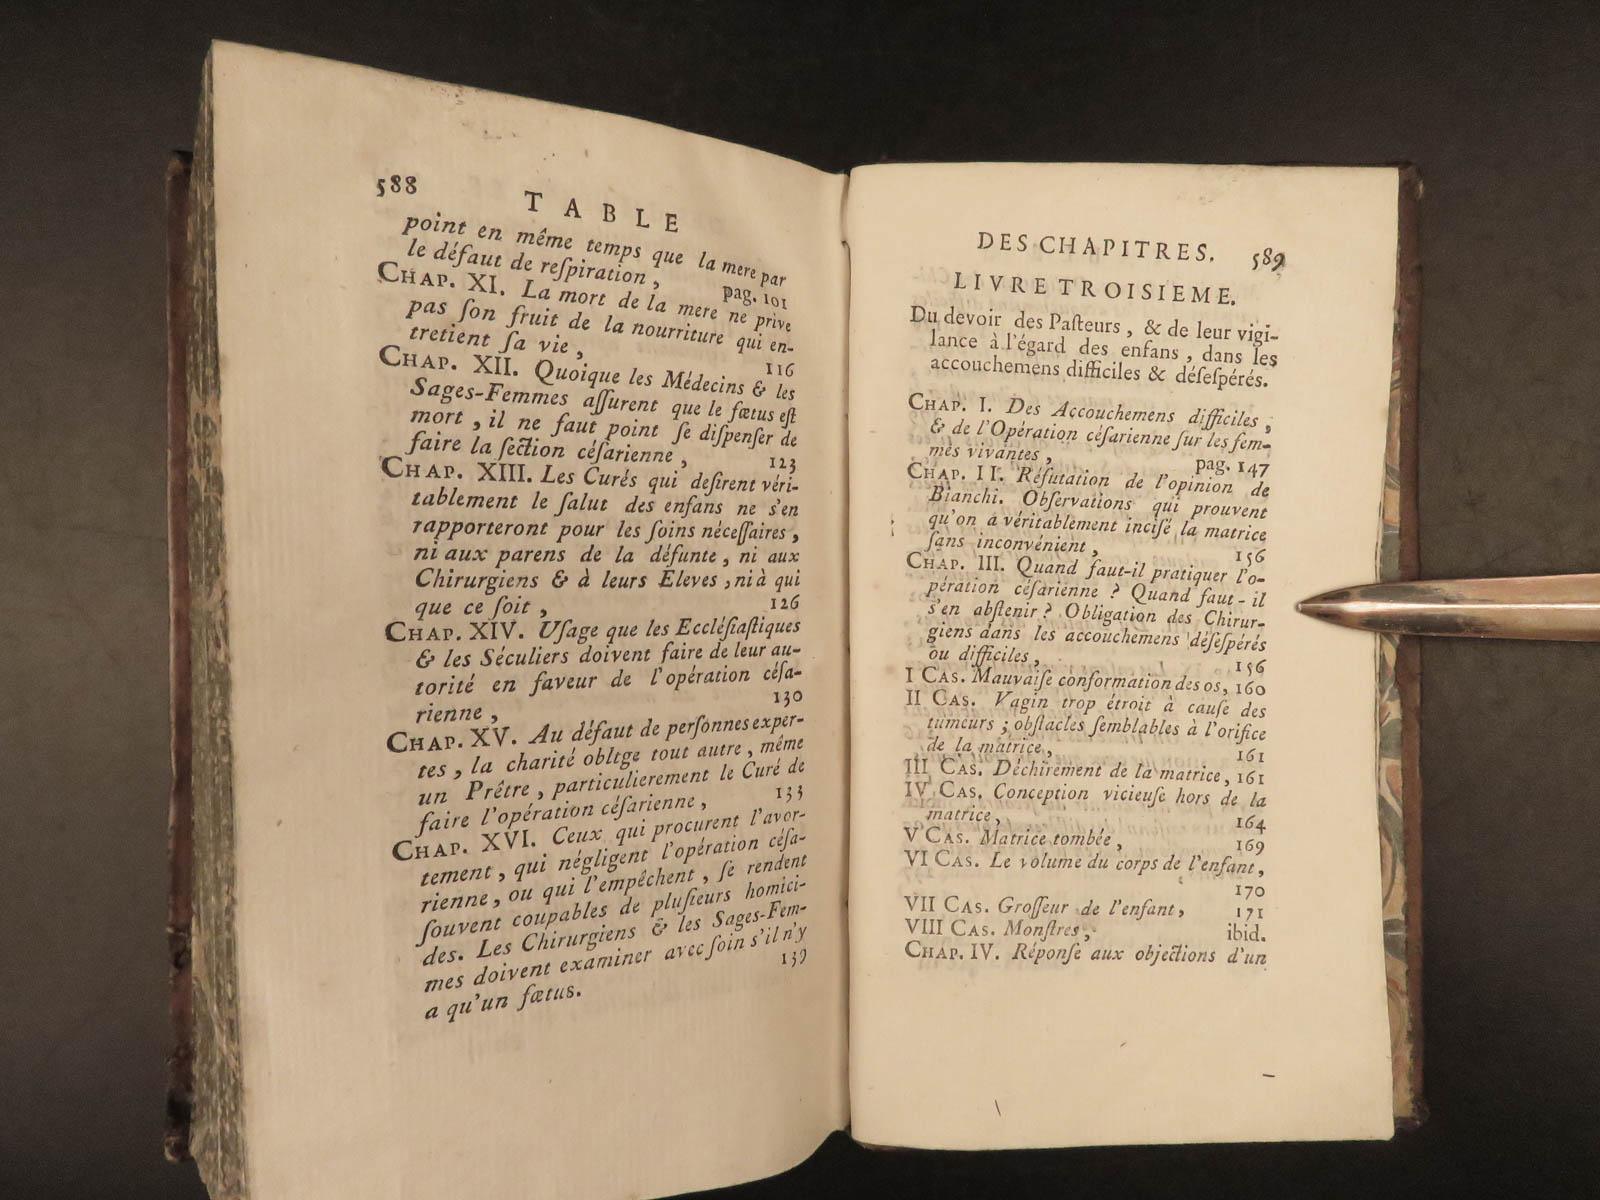 588
TABLE
point en même temps que la mere par
le défaut de reſpiration, pag. 101
CHAP. XI. La mort de la mere ne prive
pas ſon fruit de la nourriture qui en-
tretient ſa vie, 116
CHAP. XII. Quoique les Médecins & les
Sages-Femmes aſſurent que le fœtus eſt
mort, il ne faut point ſe diſpenſer de
faire la ſection céſarienne, 123
CHAP. XIII. Les Curés qui deſirent véri-
tablement le ſalut des enfans ne s'en
rapporteront pour les ſoins néceſſaires,
ni aux parens de la défunte, ni aux
Chirurgiens & à leurs Eleves, ni à qui
que ce ſoit, 126
CHAP. XIV. Uſage que les Eccléſiaſtiques
& les Séculiers doivent faire de leur au-
torité en faveur de l'opération céſa-
rienne, 130
CHAP. XV. Au défaut de perſonnes exper-
tes, la charité oblige tout autre, même
un Prêtre, particulierement le Curé de
faire l'opération céſarienne, 133
CHAP. XVI. Ceux qui procurent l'avor-
tement, qui négligent l'opération céſa-
rienne, ou qui l'empêchent, ſe rendent
ſouvent coupables de pluſieurs homici-
des. Les Chirurgiens & les Sages-Fem-
mes doivent examiner avec ſoin s'il n'y
a qu'un fœtus. 139
DES CHAPITRES. 589
LIVRE TROISIEME.
Du devoir des Paſteurs, & de leur vigi-
lance à l'égard des enfans, dans les
accouchemens difficiles & déſeſpérés.
CHAP. I. Des Accouchemens difficiles,
& de l'Opération céſarienne ſur les fem-
mes vivantes, pag. 147
CHAP. II. Réfutation de l'opinion de
Bianchi. Obſervations qui prouvent
qu'on a véritablement inciſé la matrice
ſans inconvénient, 156
CHAP. III. Quand faut-il pratiquer l'o-
pération céſarienne ? Quand faut-il
s'en abſtenir ? Obligation des Chirur-
giens dans les accouchemens déſeſpérés
ou difficiles, 156
I CAS. Mauvaiſe conformation des os, 160
II CAS. Vagin trop étroit à cauſe des
tumeurs ; obſtacles ſemblables à l'orifice
de la matrice, 161
III CAS. Déchirement de la matrice, 161
IV CAS. Conception vicieuſe hors de la
matrice, 164
V CAS. Matrice tombée, 169
VI CAS. Le volume du corps de l'enfant,
170
VII CAS. Groſſeur de l'enfant, 171
VIII CAS. Monſtres, ibid.
CHAP. IV. Réponſe aux objections d'un